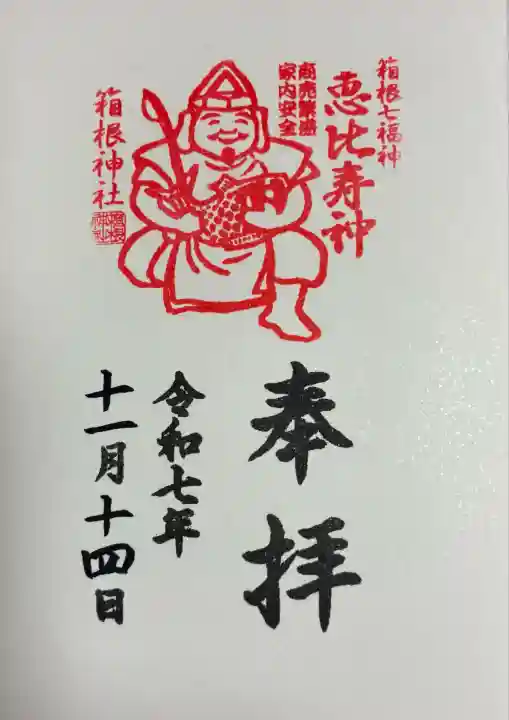 箱根七福神
恵比寿神
商売繁盛
家内安全
箱根神社
奉拝
令和七年
十一月十四日